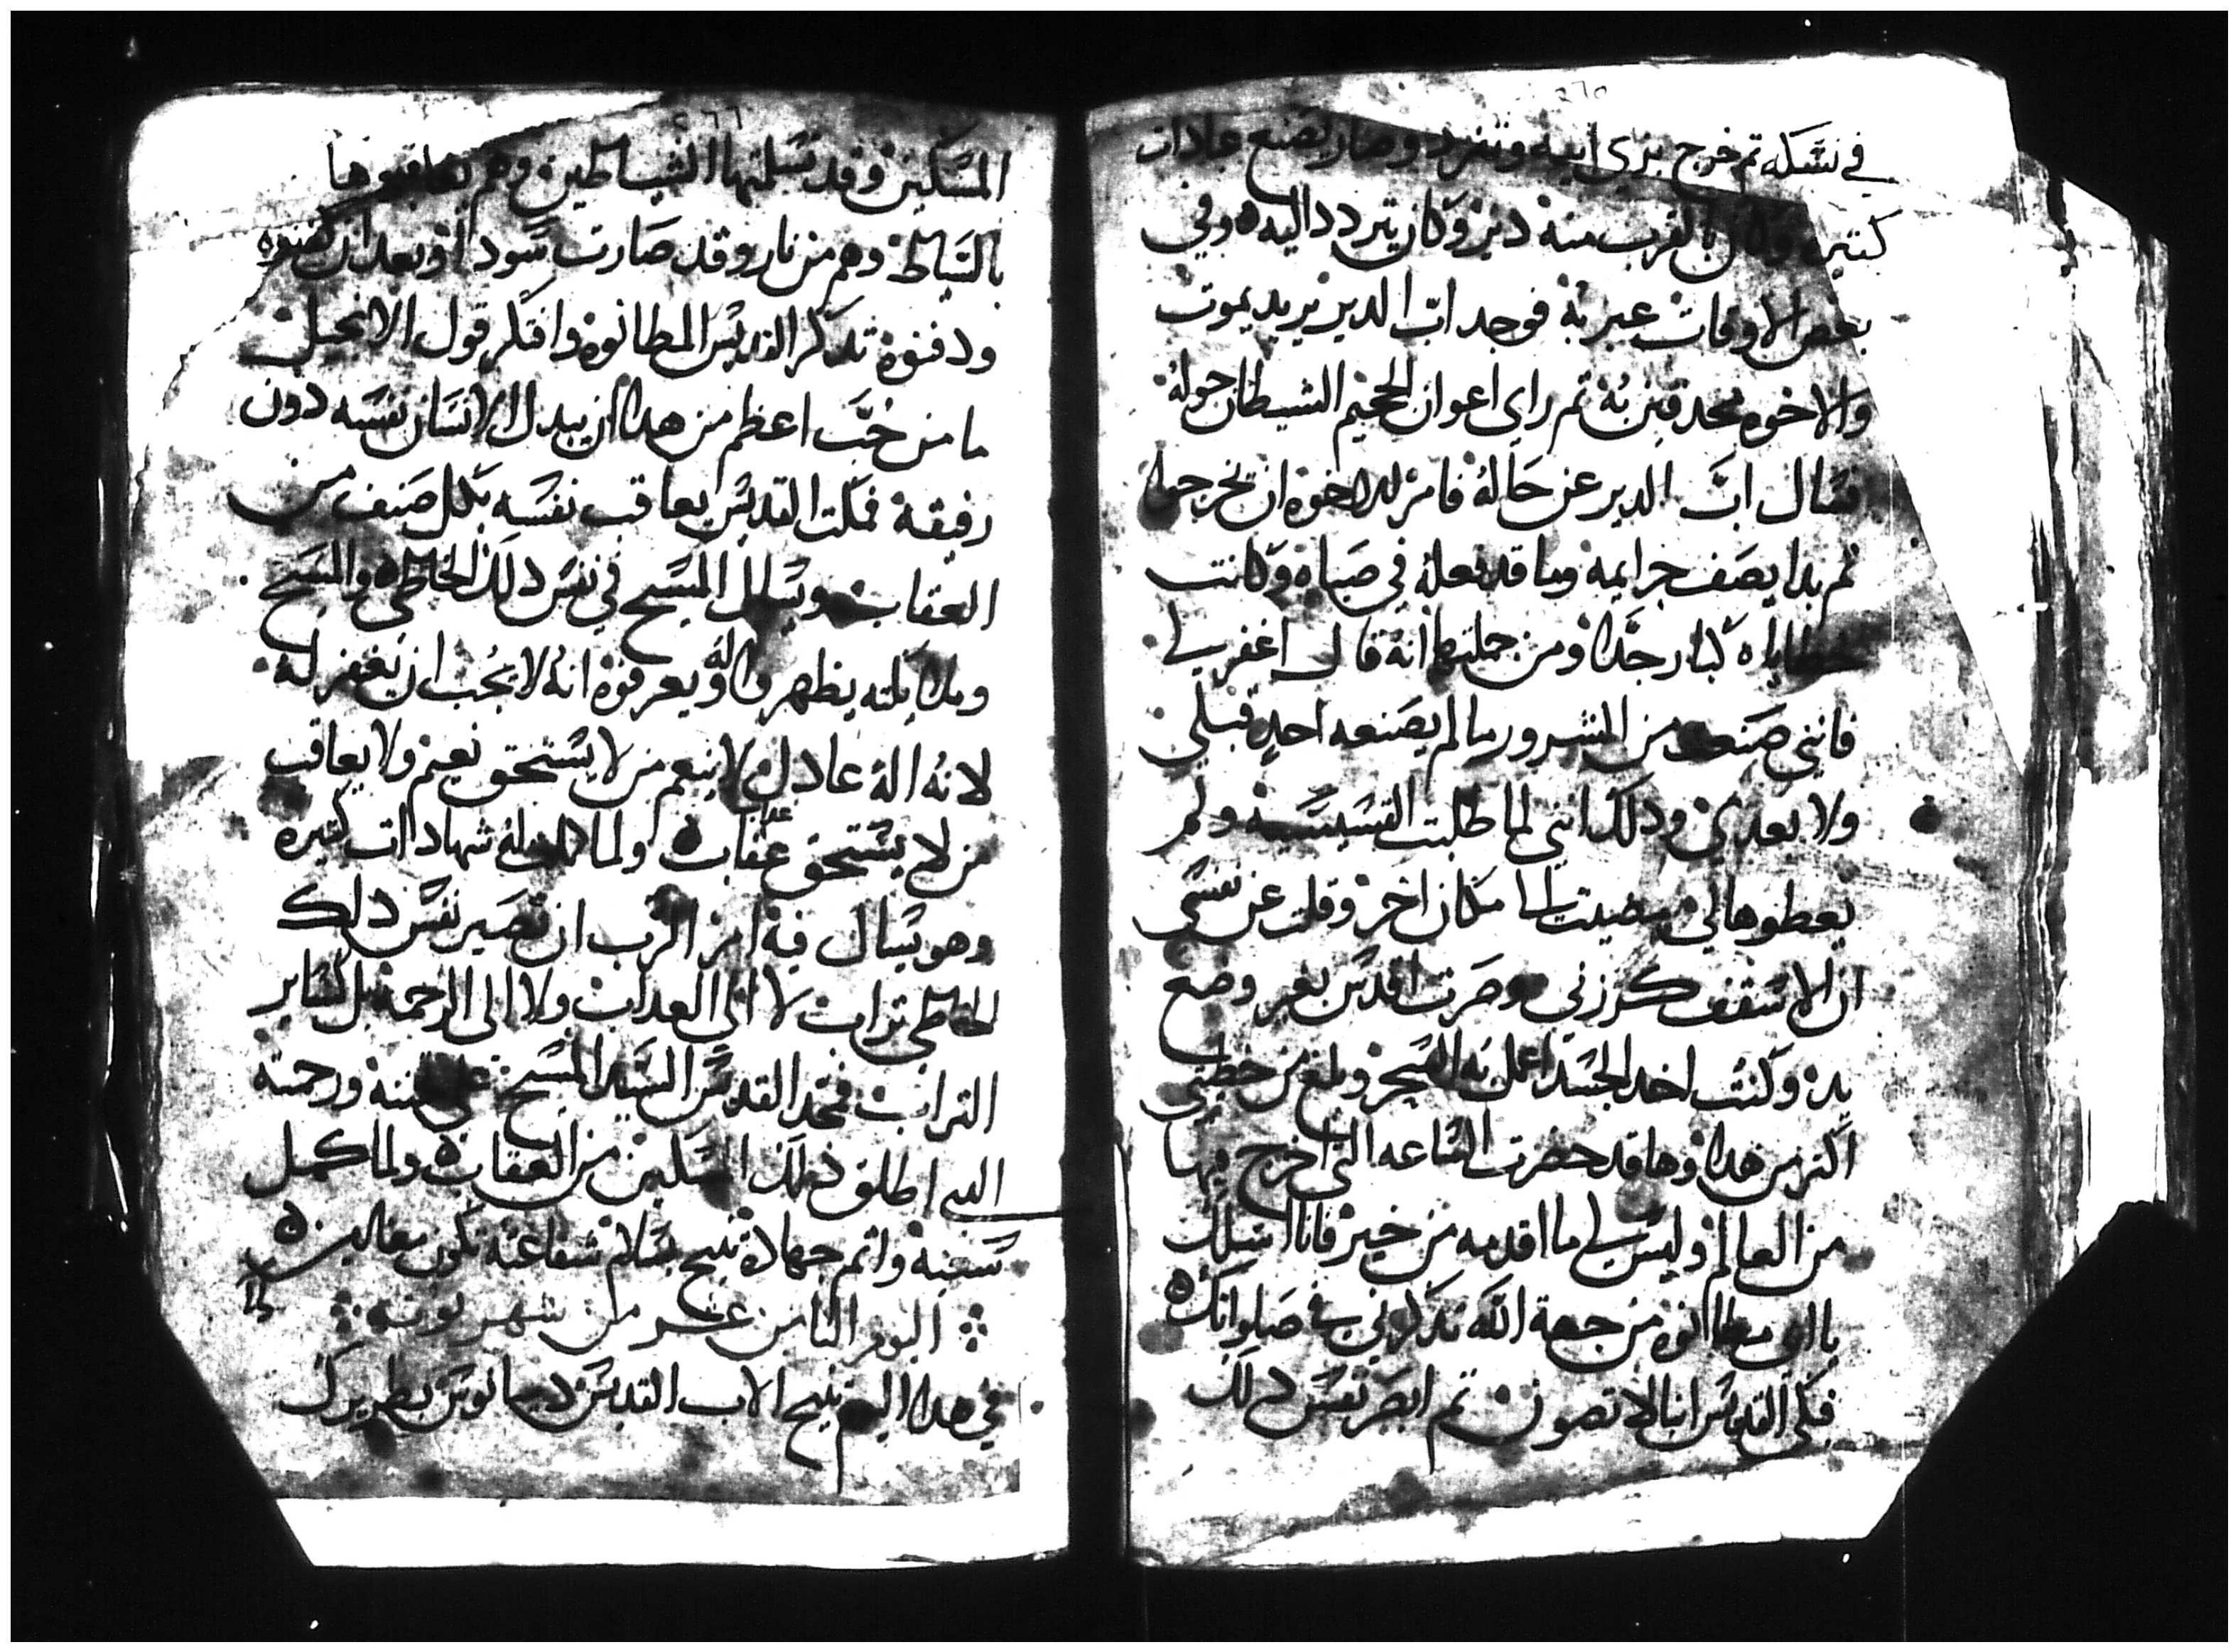 ٢٦٥
في نسكه ثم خرج بري ابيه وتفرد وصار يصنع عبادات
كتيره وكان بالقرب منه دير وكان يتردد اليه وفي
بعض الاوقات عبر به فوجد اب الدير يريد يموت
والاخوه محدقين به ثم راي اعوان الجحيم الشيطان حوله
فسال اب الدير عن حاله فامر للاخوه ان تخرج
ثم بدا يصف جرايمه وما قد فعله في صباه وكانت
خطاياه كبار جدا ومن جملتها انه قال اغفر لي
فانني صنعت من الشرور ما لم يصنعه احد قبلي
ولا بعدي ودلك انني لما طلبت القسيسيه ولم
يعطوها لي مضيت الى مكان اخر وقلت عن نفسي
ان الاسقف كرزني وصرت اقدس بغير وضع
يد وكنت اخد الجسد اعمل به السحر وبلغ من خطيتي
اكتر من هدا وها قد حضرت الساعه التي اخرج فيها
من العالم وليس لي ما اقدمه من خير فانا اسلك
يا ابي مطانوه من جهة الله تدكرني في صلواتك
فبكي القديس انبا لاتصون ثم ابصر نفس دلك
٢٦٦
المسكين وقد تسلمتها الشياطين وهم يعاقبوها
بالسياط وهم من نار وقد صارت سودا وبعد ان كفنوه
ودفنوه تدكر القديس المطانوه وافتكر قول الانجيل
ما من حب اعظم من هدا ان يبدل الانسان نفسه دون
رفيقه فمكت القديس يعاقب نفسه بكل صنف من
العقاب ويسل المسيح في نفس دلك الخاطي والمسيح
وملايكته يظهروا له ويعرفوه انه لا يجب ان يغفر له
لانه اله عادل لا ينعم من لا يستحق نعيم ولا يعاقب
من لا يستحق عقاب ولما شهادات كتيره
وهو يسال فيه امر الرب ان تصير نفس دلك
الخاطي تراب لا الى العداب ولا الى الرحمه بل كساير
التراب فمجد القديس السيد المسيح على مننه ورحمته
الدي اطلق دلك المسكين من العقاب ولما كمل
سعيه واتم جهاده تنيح بسلام شفاعته تكون معنا امين
اليوم التامن عشر من شهر بونه
في هدا اليوم تنيح الاب القديس دميانوس بطريرك